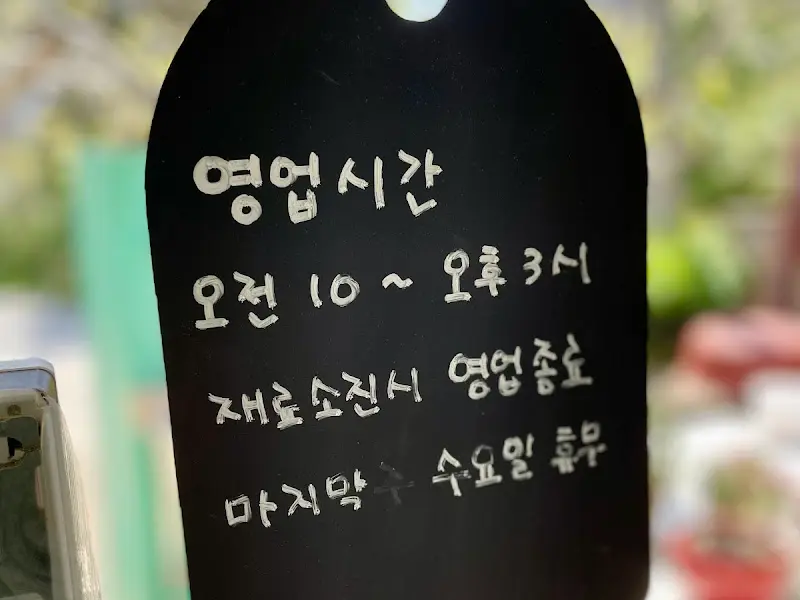 영업시간
오전 10 ~ 오후 3시
재료소진시 영업종료
마지막 수요일 휴무